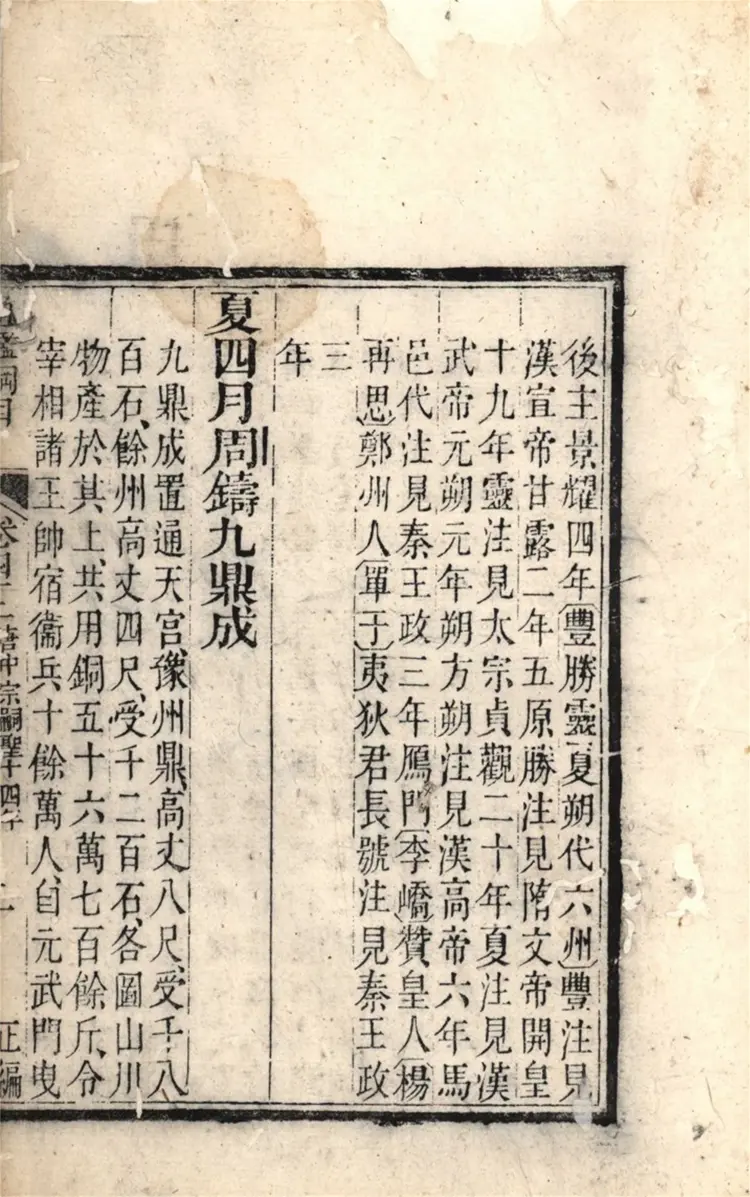 後主景耀四年豐勝靈夏朔代六州豐注見
漢宣帝甘露二年五原勝注見隋文帝開皇
十九年靈注見太宗貞觀二十年夏注見漢
武帝元朔元年朔方朔注見漢高帝六年馬
邑代注見秦王政三年鴈門李嶠贊皇人楊
再思鄭州人單于夷狄君長號注見秦王政
三
年
夏四月周鑄九鼎成
九鼎成置通天宮、豫州鼎、高丈八尺、受千八
百石、餘州高丈四尺、受千二百石、各圖山川
物產於其上、共用銅五十六萬七百餘斤、令
宰相諸王帥宿衞兵十餘萬人、自元武門曳
鑑綱目 卷四十二 唐中宗嗣聖十四年 二 正編